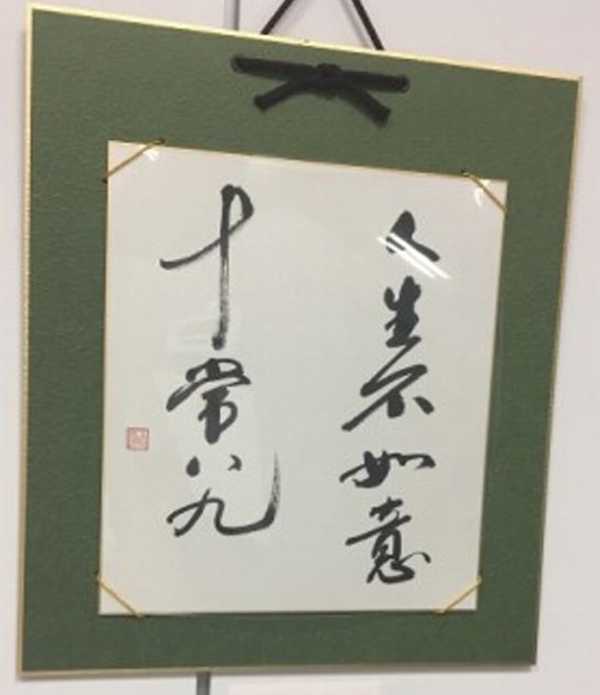 人生不如意
十常八九